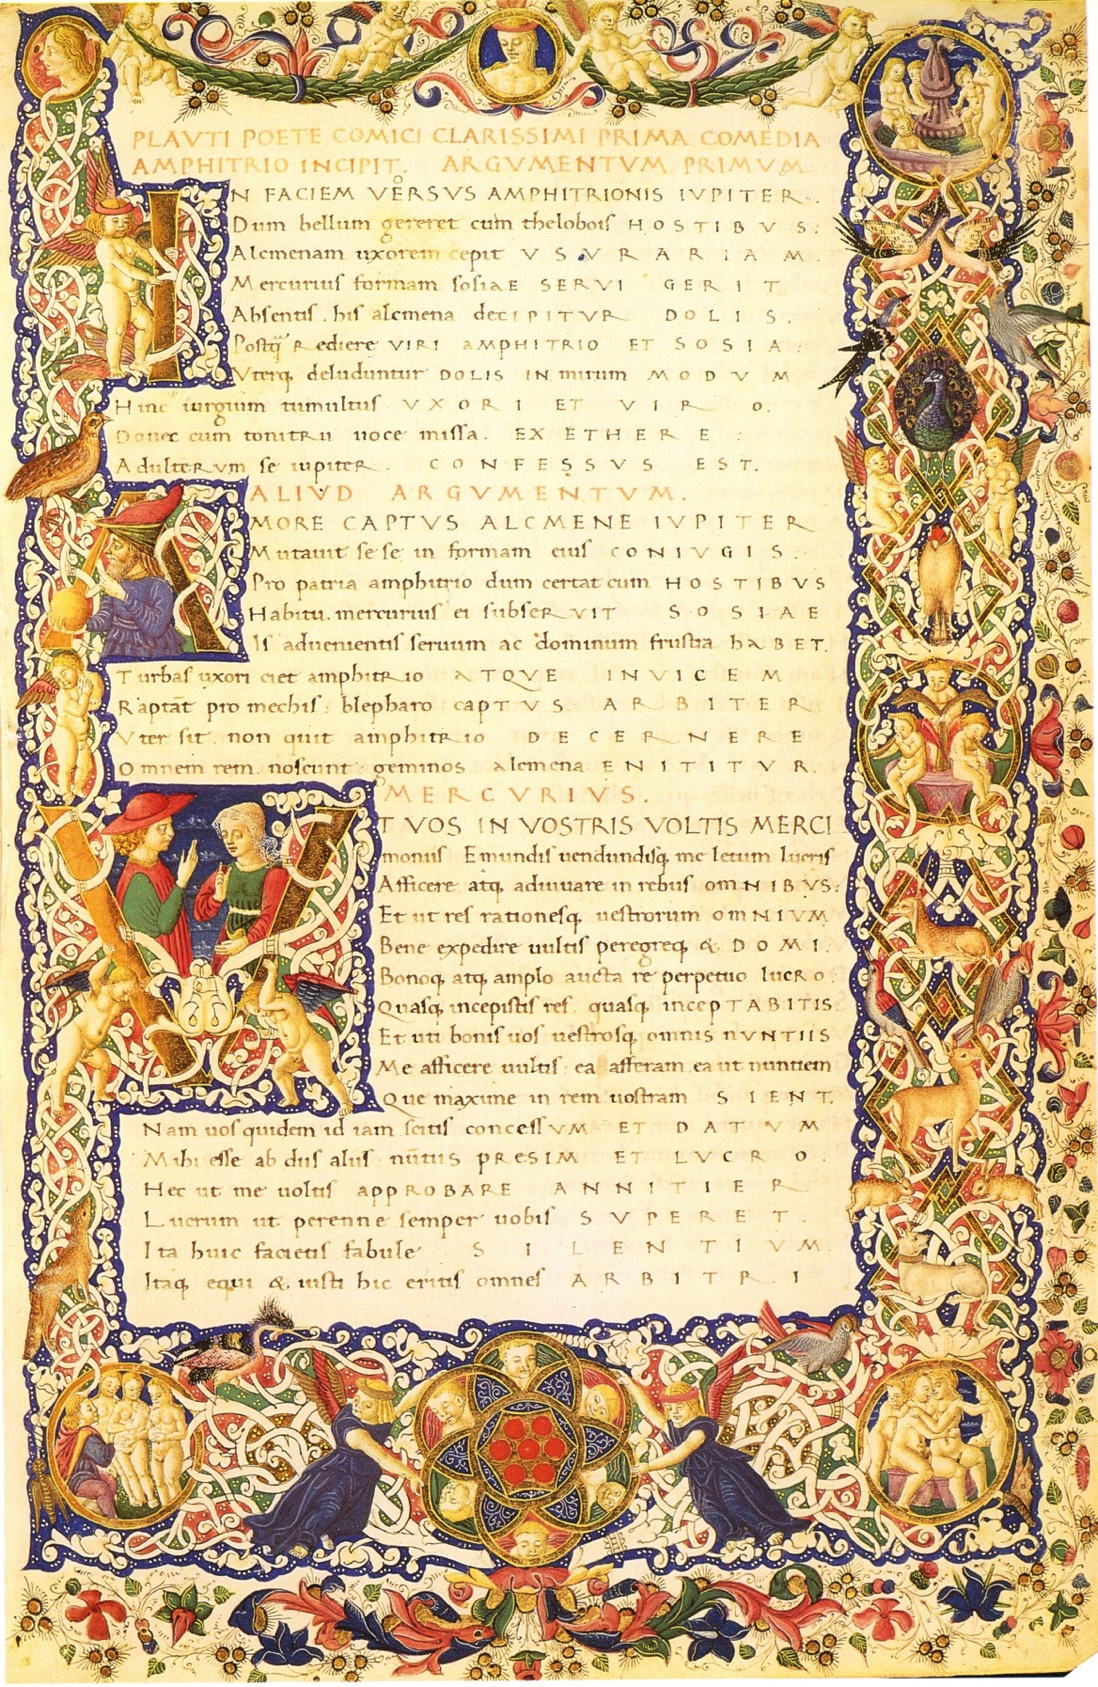 PLAVTI POETE COMICI CLARISSIMI PRIMA COMEDIA
AMPHITRIO INCIPIT. ARGVMENTVM PRIMVM.
IN FACIEM VERSVS AMPHITRIONIS IVPITER.
Dum bellum gereret cum thelobois HOSTIBVS:
Alcmenam uxorem cepit VSVRARIAM.
Mercurius formam sosiAE SERVI GERIT
Absentis. his alcmena decIPITVR DOLIS.
Postq̄ Rediere VIRI AMPHITRIO ET SOSIA:
Vterq; deluduntur DOLIS IN mirum MODVM
Hinc iurgium tumultus VXORI ET VIRO.
Donec cum tonitru uoce missa. EX ETHERE:
AdulteRVm se iupiteR. CONFESSVS EST.
ALIVD ARGVMENTVM.
AMORE CAPTVS ALCMENE IVPITER
Mutauit sese in formam eius CONIVGIS:
Pro patria amphitrio dum certat cum HOSTIBVS
Habitu. mercurius ei subseRVIT SOSIAE
Is aduenientis seruum ac dominum frustra hABET.
Turbas uxori ciet amphitRio ATQVE INVICEM
Raptāt pro mechis: blepharo capTVS ARBITER
Vter sit. non quit amphitRio DECERNERE
Omnem rem noscunt geminos alcmena ENITITVR.
MERCVRIVS.
VT VOS IN VOSTRIS VOLTIS MERCI
moniis Emundis uendundisq; me letum lucris
Afficere atq; adiuuare in rebus omNIBVS:
Et ut res rationesq; uestrorum omNIVM
Bene expedire uultis peregreq; & DOMI.
Bonoq; atq; amplo aucta re perpetuo lucro:
Quasq; incepistis res. quasq; incepTABITIS.
Et uti bonis uos uestrosq; omnis nVNTIIS
Me afficere uultis: ea afferam ea ut nuntiem
Que maxume in rem uostram SIENT.
Nam uos quidem id iam scitis concessVM ET DATVM
Mihi esse ab diis aliis nūtiis pRESIM ET LVCRO.
Hec ut me uoltis appROBARE ANNITIER
Lucrum ut perenne semper uobis SVPERET.
Ita huic facietis fabule SILENTIVM.
Itaq; equi & iusti hic eritis omnes ARBITRI